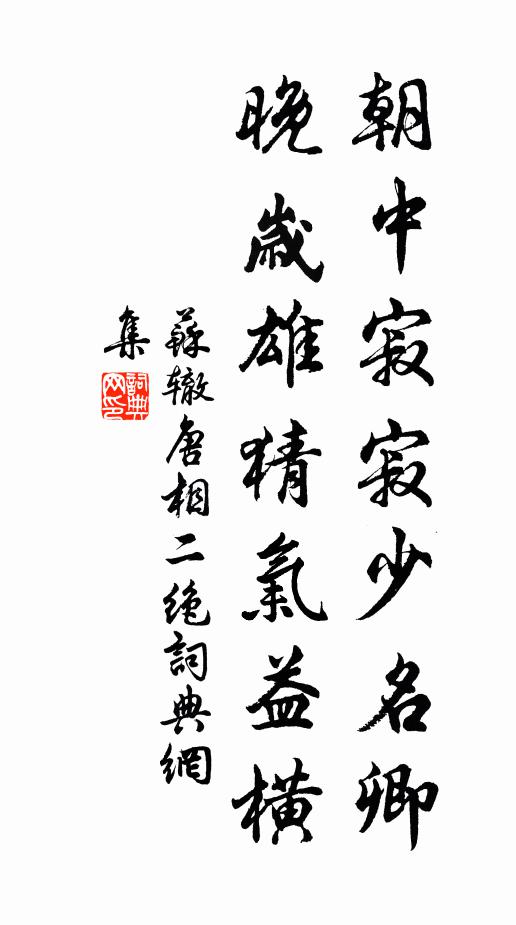 朝中寂寂少名卿
晚歲雄猜氣益橫
蘇辙唐相二绝詞典網
集
詞典网印